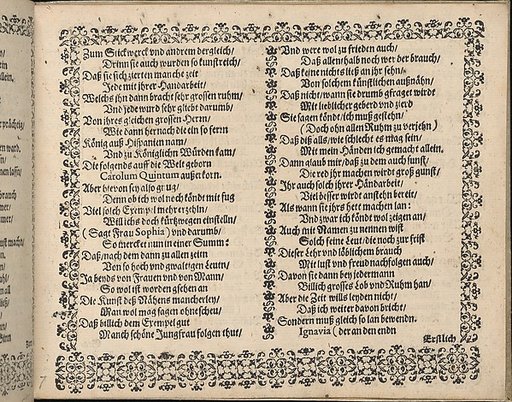 Zum Stickwerck vnd anderm dergleich/
Drinn sie auch wurden so kunstreich/
Daß sie sich zierten manche zeit
Jede mit ihrer Handarbeit/
Welchs jhn dann bracht sehr grossen ruhm/
Vnd jede ward sehr gliebt darumb/
Von jhres gleichen grossen Herrn/
Wie dann hernach die ein so fern
König auß Hispanien nam/
Vnd zu Königlichn Würden kam/
Die folgends auff die Welt geborn
Carolum Quintum außerkorn.
Aber hievon sey also gnug/
Denn ob ich wol noch köndt mit fug
Viel solch Exempel mehr erzehln/
Will ichs doch kürtz wegen einstelln/
(Sagt Frau Sophia) vnd darumb/
So mercket nun in einer Summ:
Daß/nach dem dann zu allen zeitn
Von so hoch vnd gwaltigen Leutn/
Ja beyds von Frauen vnd von Mann/
So wol ist worden gsehen an
Die Kunst deß Nähens mancherley/
Man wol mag sagen ohne scheu/
Daß billich dem Exempel gut
Manch schöne Jungfrau folgen thut/
Vnd were wol zu frieden auch/
Daß allenthalb noch wer der brauch/
Daß keine nichts ließ an jhr sehn/
Von solchem künstlichen außnähn/
Daß nicht/wann sie drumb gfraget wirdt
Mit lieblicher geberd vnd zierd
Sie sagen könde/ich muß gestehn/
(Doch ohn allen Ruhm zu verjehn)
Daß diß alls/wie schlecht es mag sein/
Mit mein Händen ich gemacht allein.
Dann glaub mir/daß zu dem auch sunst/
Die red ihr machen wirdt groß gunst/
Ihr auch solch ihrer Handarbeit/
Viel besser wirdt anstehn bereit/
Als wann sie jhrs hett machen lan:
Vnd zwar ich köndt wol zeigen an/
Auch mit Namen zu nennen wist
Solch feine Leut/die noch zur frist
Dieser Lehr vnd löblichem brauch
Mit lust vnd freud nachfolgen auch/
Davon sie dann bey jedermann
Billich grosses Lob vnd Ruhm han/
Aber die Zeit wills leyden nicht/
Daß ich weiter davon bricht/
Sondern muß gleich so lan bewendn.
Ignavia (der an den endn
Erstlich